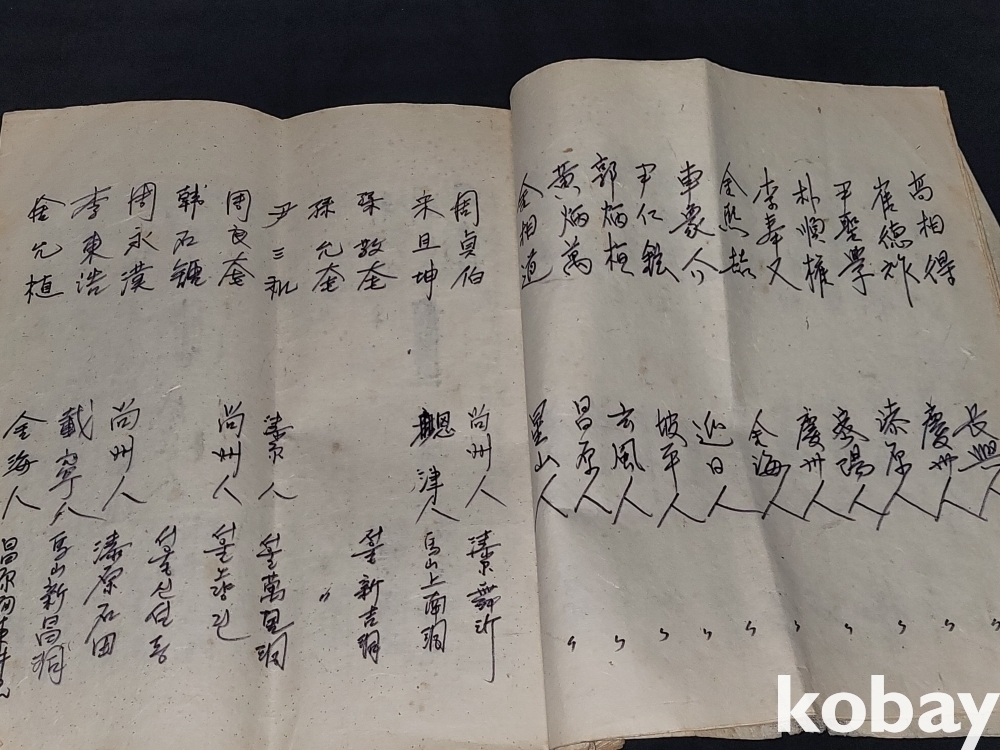 高相得 長興人 〃
崔德祚 慶州人 〃
尹聖學 漆原人 〃
朴順權 密陽人 〃
李奉文 慶州人 〃
金熙喆 金海人 〃
車象 延日人 〃
尹仁鉉 坡平人 〃
郭炳桓 玄風人 〃
黃炳萬 昌原人 〃
金相道 星山人 〃
周貞伯 尚州人 漆原舞沂
宋旦坤 恩津人 馬山上南洞
孫敬奎 서울新吉洞
孫允奎 〃
尹三 漆原人 서울萬里洞
周良奎 尚州人 서울
韓石鍾 서울신설동
周永漢 尚州人 漆原石田
李東浩 載寧人 馬山新昌洞
金允植 金海人 昌原
kobay